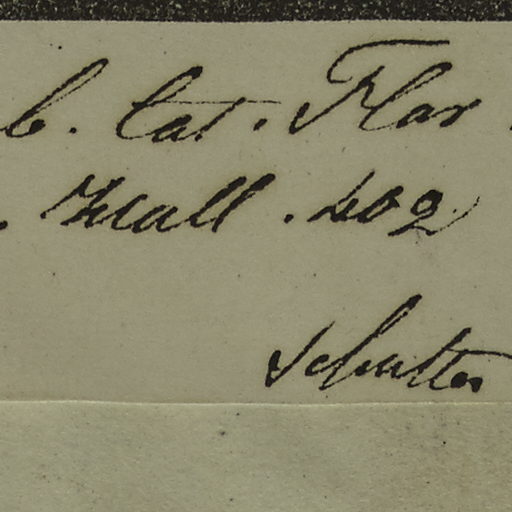 b. Cat. Flar.
. Hall. 402
Schutter